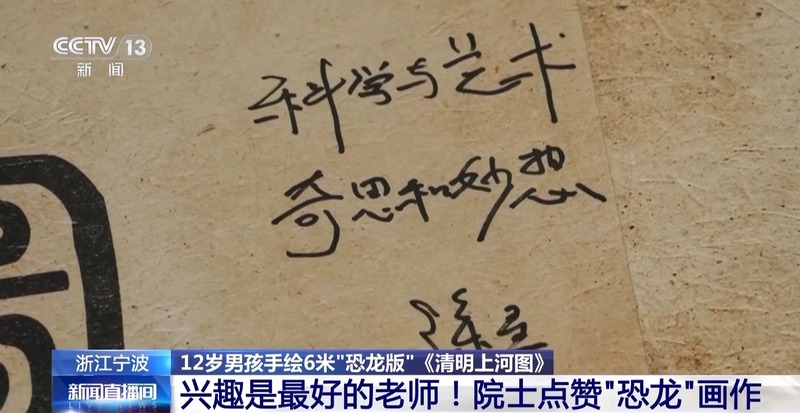 CCTV 13
新闻
科学与艺术
奇思和妙想
浙江宁波
12岁男孩手绘6米"恐龙版"《清明上河图》
新闻直播间
兴趣是最好的老师！院士点赞"恐龙"画作